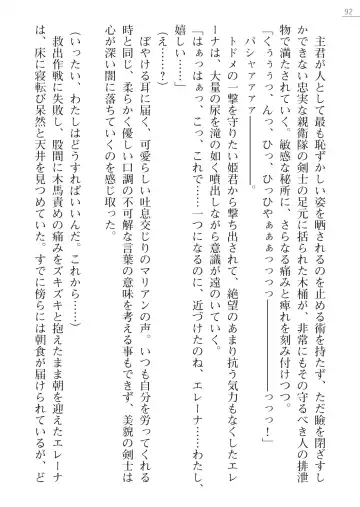 92
主君が人として最も恥ずかしい姿を晒されるのを止める術を持たず、ただ瞼を閉ざすし
かできない忠実な親衛隊の剣士の足元に括られた木桶が、非常にもその守るべき人の排泄
物で満たされていく。敏感な秘所に、さらなる痛みと痺れを刻み付けつつ。
「くぅぅぅっ、んっ、ひっ、ひっひやぁぁぁっっっ――――――っっっ！」
パシャァァァァ――――――。
トドメの一撃を守りたい姫君から撃ち出されて、絶望のあまり抗う気力もなくたエレ
ーナは、大量の尿を滝の如く噴出しながら意識が遠のいていく。
「はぁっはぁっ、こっ、これで……一つになるのに、近づけたのね、エレーナ……わたし、
嬉しい……」
（え……？）
ぼやける耳に届く、可愛らしい吐息交じりのマリアンの声。いつも自分を労ってくれる
時と同じ、柔らかく優しい口調の不可解な言葉の意味を考える事もできず、美貌の剣士は
心が深い闇に落ちていくのを感じ取った。
（いったい、わたしはどうすればいいんだ。これから……）
救出作戦に失敗し、股間に木馬責めの痛みをズキズキと抱えたまま朝を迎えたエレーナ
は、床に寝転び呆然と天井を見つめていた。すでに傍らには朝食が届けられているが、ど